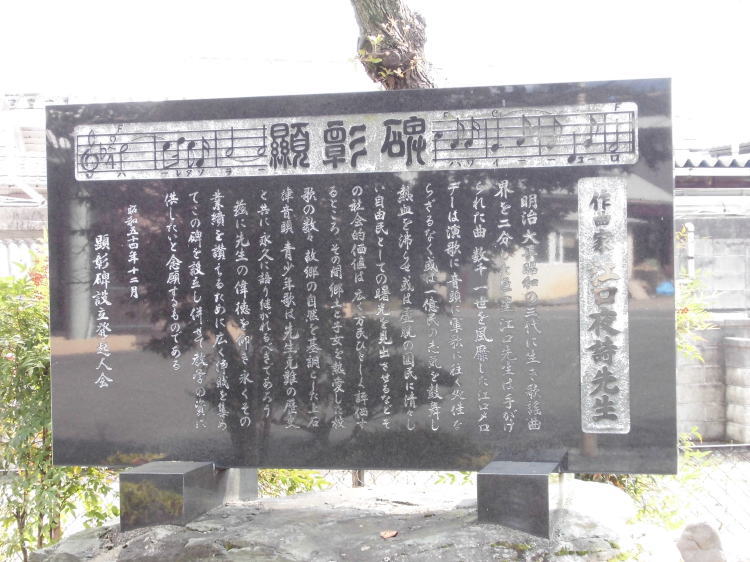 顯彰碑
作曲家 江口夜詩先生
明治 大正 昭和の三代に生き 歌謡曲
界を二分した巨星江口先生は手がけ
られた曲 数千 一世を風靡した江口メロ
デーは演歌に音頭に軍歌に往く処
らざるなく或は一億民の志気を鼓舞し
熱血を沸らせ或は虚脱の国民に清々し
い自由民としての曙光を見出させるなどそ
の社会的価値は広く万民ひとしく評価す
るところ その間郷土の子女を熱愛した校
歌の数々 故郷の自然を基調とした上石
津音頭 青少年歌は先生の歴史
と共に永久に語り継がれるべきであろう
茲に先生の偉徳を仰ぎ 永くその
業績を讃えるために広く浄財を集め
てこの碑を設立し併せて教学の資に
供したいと念願するものである
昭和五十四年十二月
顕彰碑設立発起人会